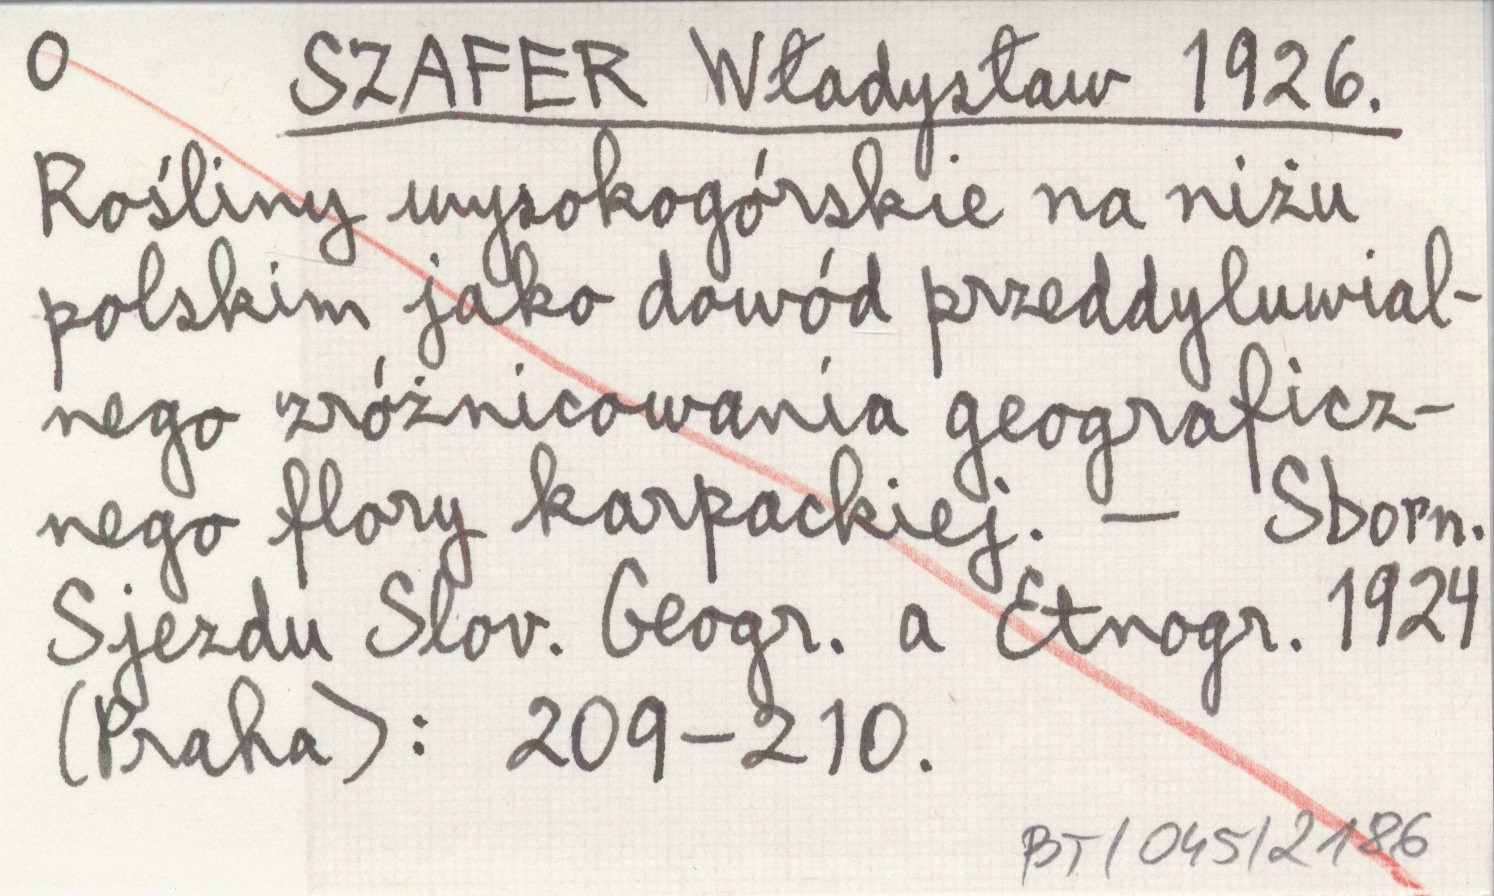 O SZAFER Władysław 1926.
Rośliny wysokogórskie na niżu
polskim jako dowód przeddyluwial-
nego zróżnicowania geograficz-
nego flory karpackiej. — Sborn.
Sjezdu Slov. Geogr. a Etnogr. 1924
(Praha): 209-210.
BT/045/2186